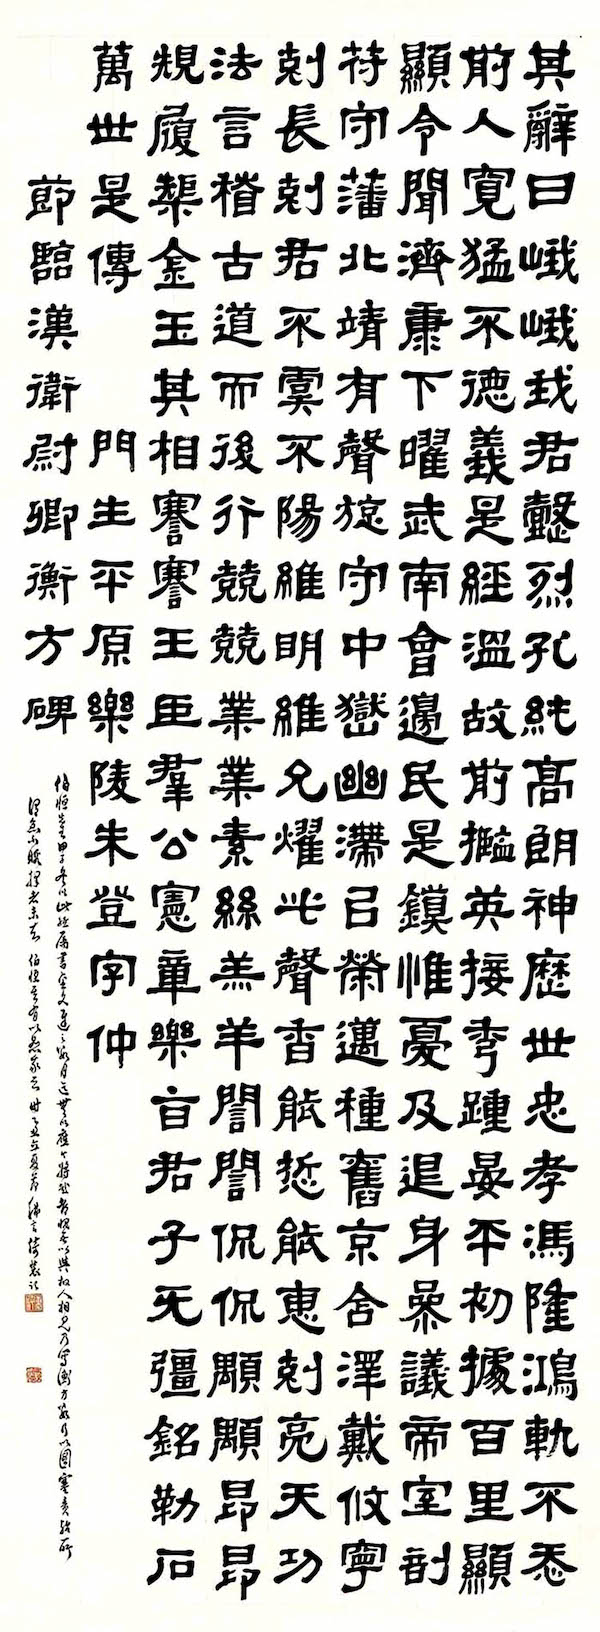 其辭曰峨峨我君懿烈孔純高朗神歷世忠孝馮隆鴻軌不忝
前人寬猛不德義是經溫故前㩜英接秀踵晏平初據百里顯
顯令聞濟康下曜武南會邊民是鏌惟憂及退身參議帝室剖
符守藩北靖有聲旋守中嶽幽滯㠯榮邁種舊京含澤戴攸寧
剋長剋君不虞不陽維明維允燿此聲香能悊能惠剋亮天功
法言稽古道而後行兢兢業業素絲羔羊誾誾侃侃顒顒昂昂
規履榘金玉其相謇謇王臣羣公憲章樂旨君子无彊銘勒石
萬世是傳 門生平原樂陵朱登字仲
節臨漢衛尉卿衡方碑
伯恒先生甲子冬以此紙屬書